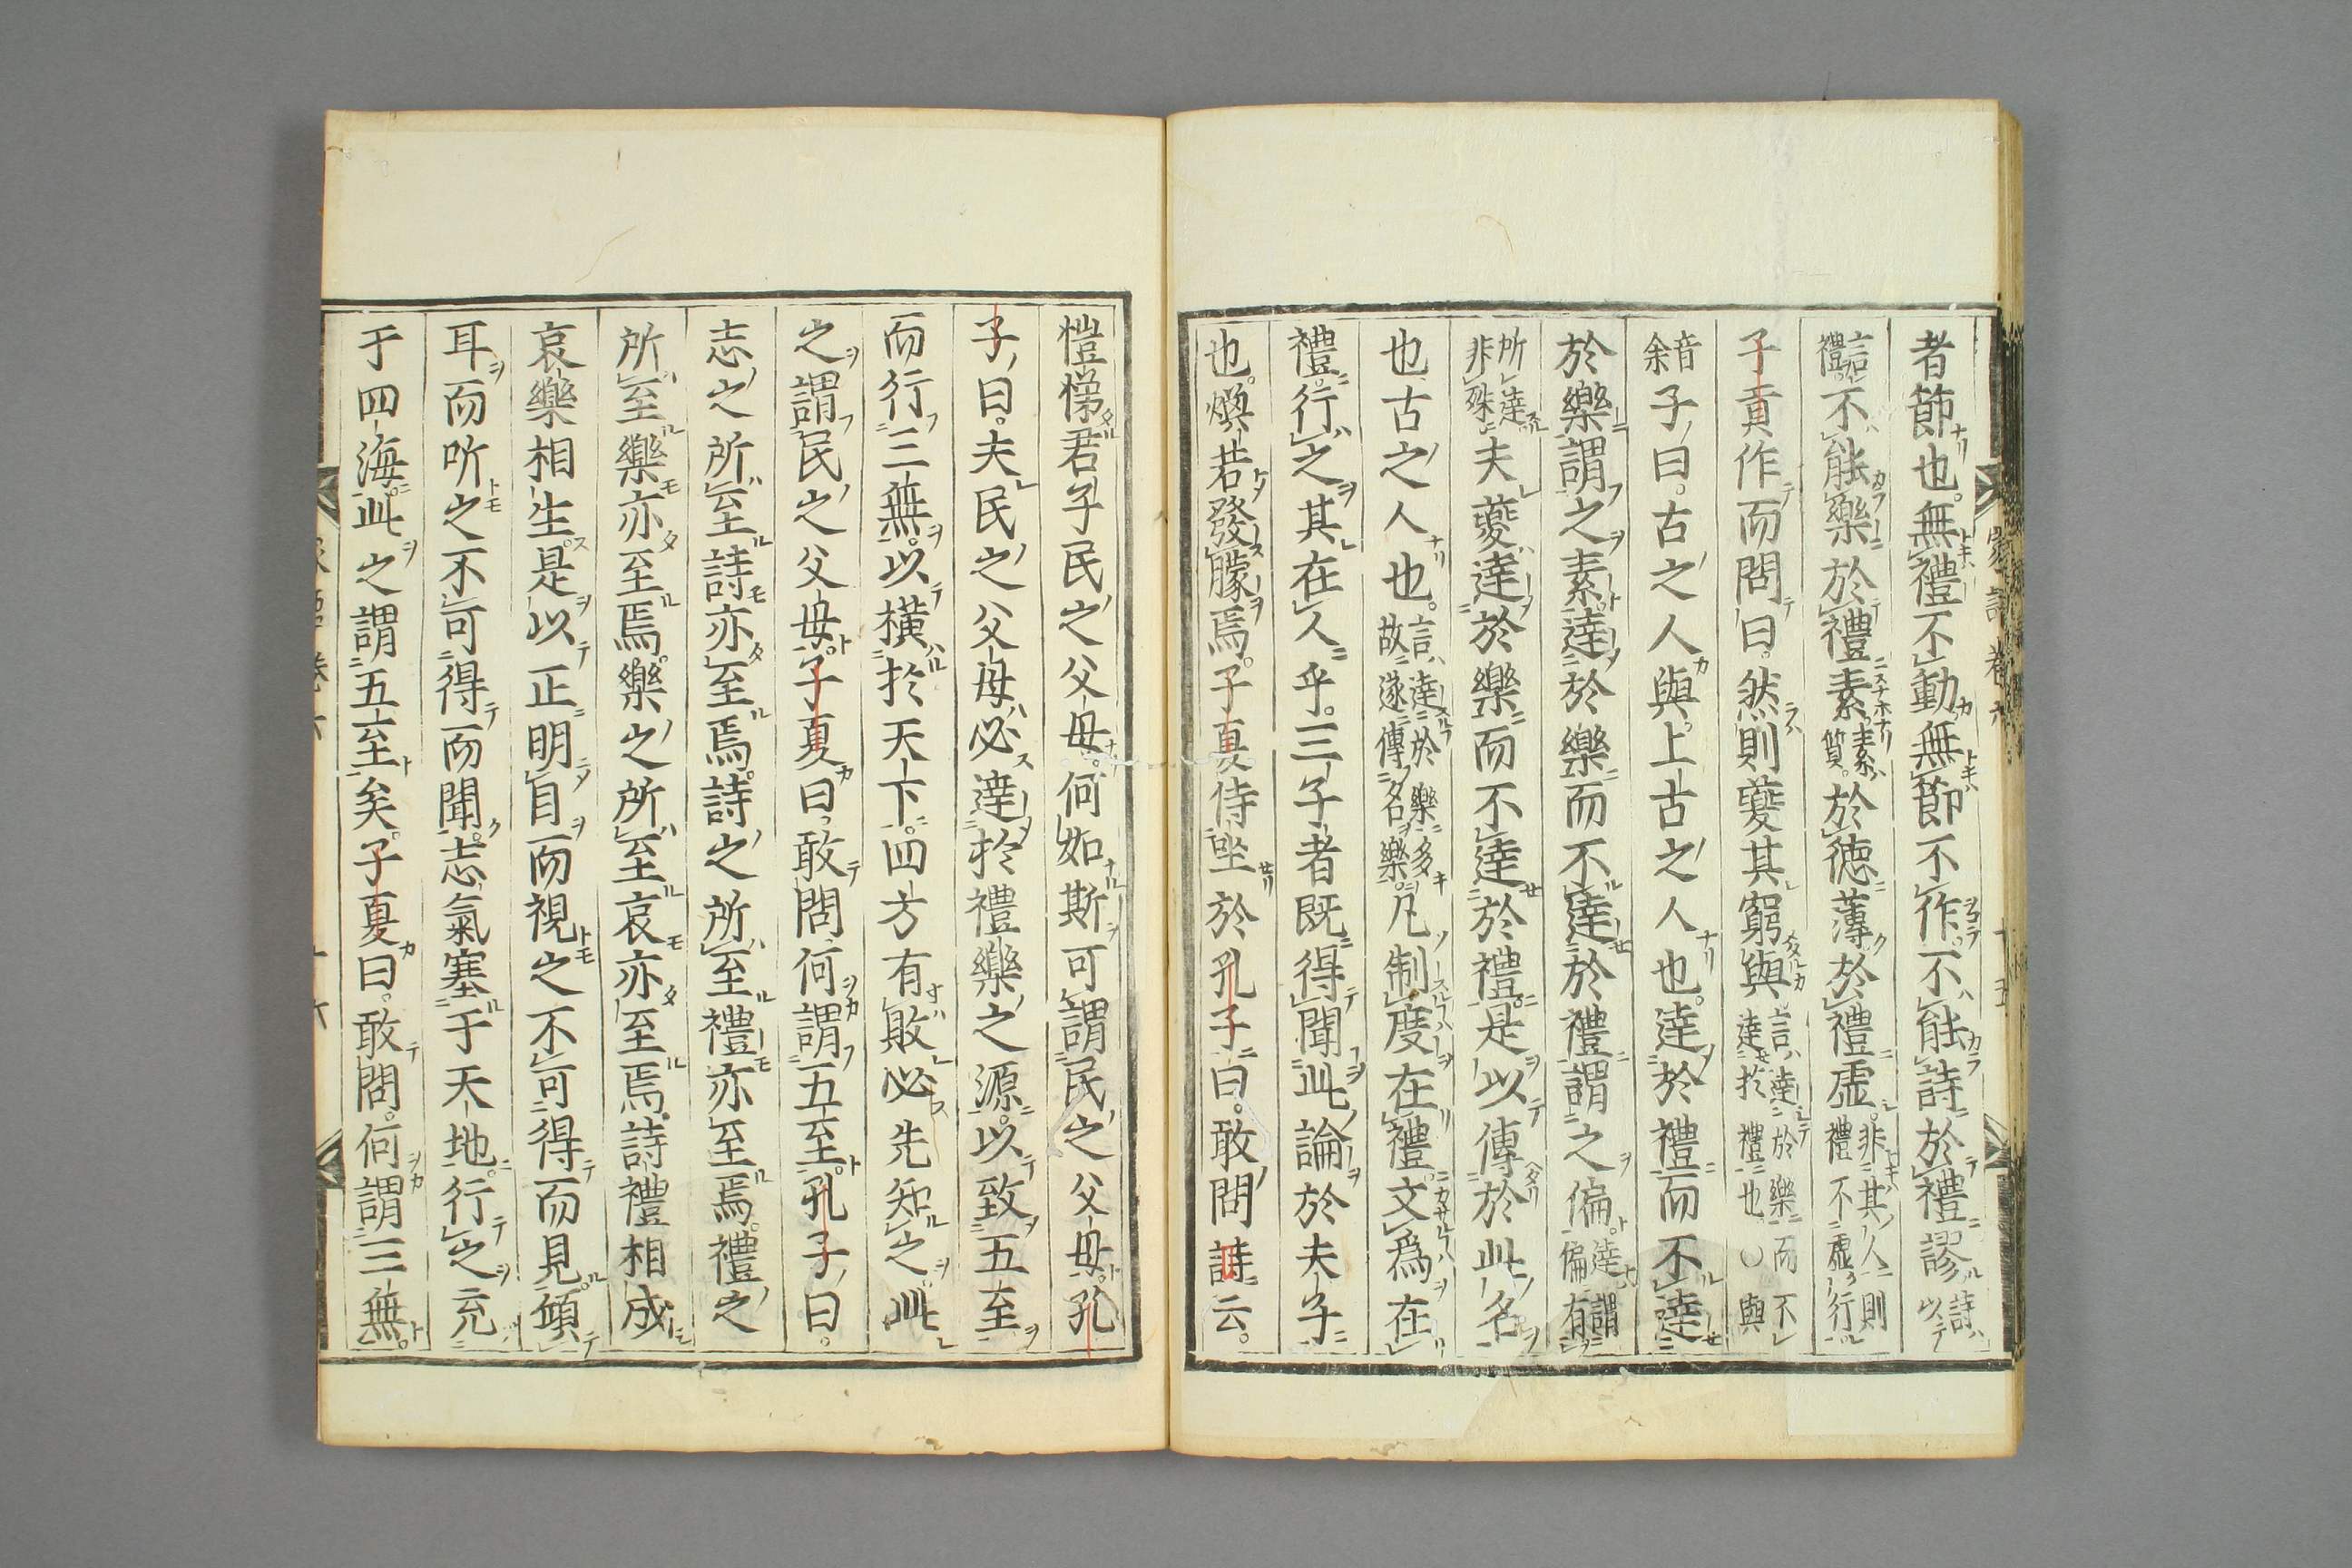 家語卷六 十五
者節也。無禮不動無節不作。不能詩於禮謬詩以
言禮。不能樂於禮素素質。於德薄於禮虛。非其人則禮不虛行
子貢作而問曰。然則夔其窮與言達於樂而不達於禮也○與
音余子曰。古之人與上古之人也。達於禮而不達
於樂謂之素。達於樂而不達於禮謂之偏。達謂偏有
所達非殊夫夔達於樂而不達於禮。是以傳於此名
也古之人也。言達於樂多故遂傳名樂。凡制度在禮。文爲在
禮。行之其在人乎。三子者既得聞此論於夫子
也。煥若發矇焉。子夏侍坐於孔子曰。敢問詩云。
愷悌君子民之父母。何如斯可謂民之父母。孔
子曰。夫民之父母必達於禮樂之源。以致五至
而行三無。以橫於天下。四方有敗必先知之此
之謂民之父母。子夏曰。敢問何謂五至。孔子曰。
志之所至詩亦至焉。詩之所至禮亦至焉。禮之
所至樂亦至焉。樂之所至哀亦至焉。詩禮相成
哀樂相生。是以正明目而視之不可得而見。傾
耳而听之不可得而聞。志氣塞于天地。行之充
于四海。此之謂五至矣。子夏曰。敢問。何謂三無。